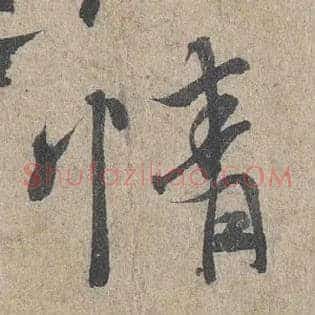 情
Shufazidian.COM